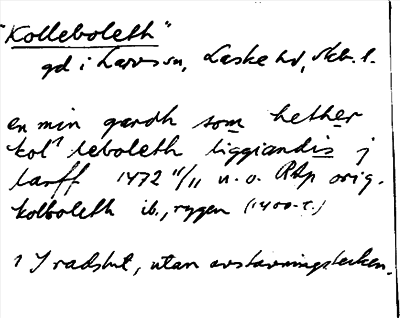 "Kolleboleth"
gd i Larvs sn, Laske hd, Skb. l.
en min gardh som hether
kol¹ leboleth liggiandis j
larff 1472 11/11 u.o. RAp orig.
kolboleth ib., ryggen (1400-t.)
1 I radslut, utan avstavningstecken.